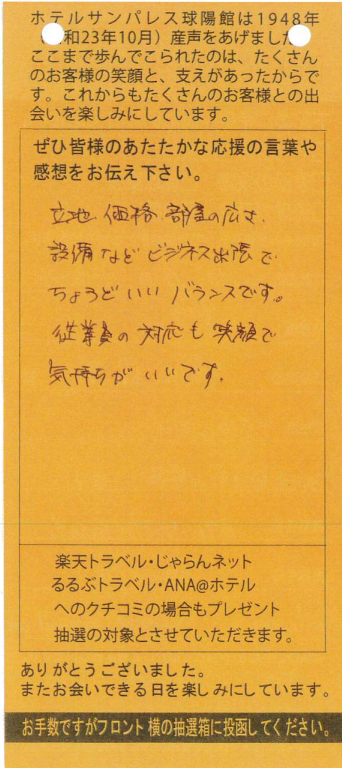 ホテルサンパレス球陽館は1948年
和23年10月）産声をあげました
ここまで歩んでこられたのは、たくさん
のお客様の笑顔と、支えがあったからで
す。これからもたくさんのお客様との出
会いを楽しみにしています。
ぜひ皆様のあたたかな応援の言葉や
感想をお伝え下さい。
立地、価格、部屋の広さ、
設備などビジネス出張で
ちょうどいいバランスです。
従業員の対応も笑顔で
気持ちがいいです。
楽天トラベル・じゃらんネット
るるぶトラベル・ANA@ホテル
へのクチコミの場合もプレゼント
抽選の対象とさせていただきます。
ありがとうございました。
またお会いできる日を楽しみにしています。
お手数ですがフロント横の抽選箱に投函してください。